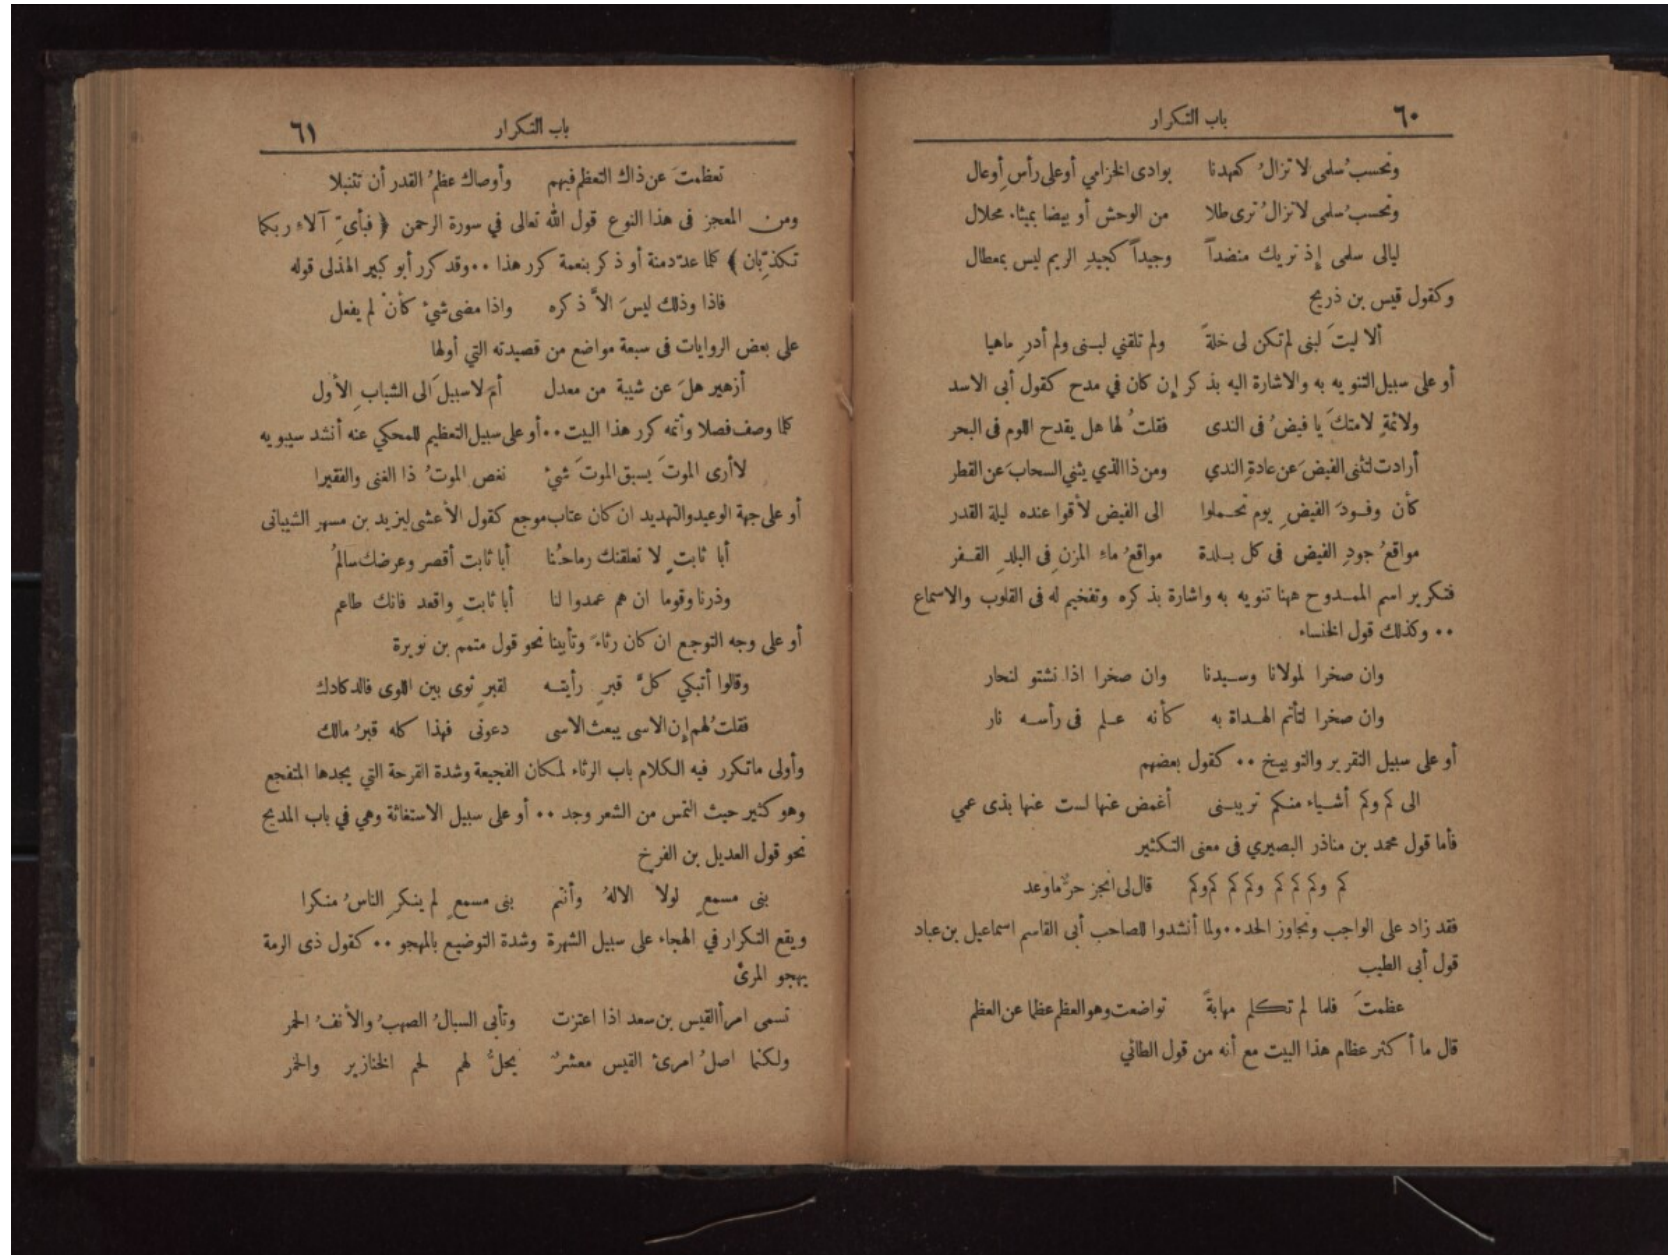 ٦٠
باب التكرار
وتحسبُ سلمى لا تزالُ كعهدنا بوادى الخزامي أو على رأس أوعال
وتحسبُ سلمى لا تزالُ ترى طلا من الوحش أو بيضا بميثاء محلال
ليالى سلمى إذ تريك منضداً وجيداً كجيدِ الريم ليس بمعطال
وكقول قيس بن ذريح
ألا ليتَ لبنى لم تكن لى خلةً ولم تلقني لبنى ولم أدرِ ماهيا
أو على سبيل التنويه به والاشارة اليه بذكر إن كان في مدح كقول أبى الاسد
ولائمةٍ لامتكَ يا فيضُ فى الندى فقلتُ لها هل يقدح اللوم فى البحر
أرادت لتثنى الفيضَ عن عادةِ الندي ومن ذا الذي يثني السحابَ عن القطر
كأن وفودَ الفيضِ يوم تحملوا الى الفيض لأقوا عنده ليلة القدر
مواقعُ جودِ الفيض فى كل بلدة مواقعُ ماءِ المزنِ فى البلدِ القفر
فتكرير اسم الممدوح ههنا تنويه به واشارة بذكره وتفخيم له فى القلوب والاسماع
٠٠ وكذلك قول الخنساء
وان صخرا لمولانا وسيدنا وان صخرا اذا نشتو لنحار
وان صخرا لتأتم الهداة به كأنه علم فى رأسه نار
أو على سبيل التقرير والتوبيخ ٠٠ كقول بعضهم
الى كم وكم أشياء منكم تريبنى أغمض عنها لست عنها بذى عمي
فأما قول محمد بن مناذر البصيري فى معنى التكثير
كم وكم كم كم وكم كم كم وكم قال لى انجز حرٌّ ما وعد
فقد زاد على الواجب وتجاوز الحد ٠٠ ولما أنشدوا للصاحب أبى القاسم اسماعيل بن عباد
قول أبى الطيب
عظمتَ فلما لم تكلم مهابةً تواضعت وهو العظم عظما عن العظم
قال ما أكثر عظام هذا البيت مع أنه من قول الطائي
٦١
باب التكرار
تعظمتَ عن ذاك التعظم فيهم وأوصاك عظمُ القدر أن تتنبلا
ومن المعجز فى هذا النوع قول الله تعالى في سورة الرحمن ﴿ فبأىِّ آلاءِ ربكما
تكذِّبان ﴾ كلما عدّد منة أو ذكر بنعمة كرر هذا ٠٠ وقد كرر أبو كبير الهذلى قوله
فاذا وذلك ليسَ الاَّ ذكره واذا مضى شيءٌ كأنْ لم يفعل
على بعض الروايات فى سبعة مواضع من قصيدته التي أولها
أزهير هلَ عن شيبة من معدل أم لا سبيلَ الى الشبابِ الأول
كلما وصف فصلا وأتمه كرر هذا البيت ٠٠ أو على سبيل التعظيم للمحكي عنه أنشد سيبويه
لا أرى الموتَ يسبق الموتَ شيءٌ نغص الموتُ ذا الغنى والفقيرا
أو على جهة الوعيد والتهديد ان كان عتاب موجع كقول الأعشى ليزيد بن مسهر الشيبانى
أبا ثابتٍ لا تعلقنك رماحُنا أبا ثابت أقصر وعرضك سالمُ
وذرنا وقوما ان هم عمدوا لنا أبا ثابتٍ واقعد فانك طاعم
أو على وجه التوجع ان كان رثاءً وتأبينا نحو قول متمم بن نويرة
وقالوا أتبكي كلَّ قبرٍ رأيته لقبرٍ ثوى بين اللوى فالدكادك
فقلتُ لهم إن الاسى يبعث الاسى دعونى فهذا كله قبرُ مالك
وأولى ماتكرر فيه الكلام باب الرثاء لمكان الفجيعة وشدة القرحة التي يجدها المتفجع
وهو كثير حيث التمس من الشعر وجد ٠٠ أو على سبيل الاستغاثة وهي في باب المديح
نحو قول العديل بن الفرخ
بنى مسمعٍ لولا الالهُ وأنتم بنى مسمعٍ لم ينكرِ الناسُ منكرا
ويقع التكرار في الهجاء على سبيل الشهرة وشدة التوضيع بالمهجو ٠٠ كقول ذى الرمة
يهجو المرئ
تسمى امرأ القيس بن سعد اذا اعتزت وتأبى السبالُ الصهبُ والأنفُ الحمر
ولكنما اصلُ امرئ القيس معشرٌ يحلُّ لهم لحم الخنازير والخمر